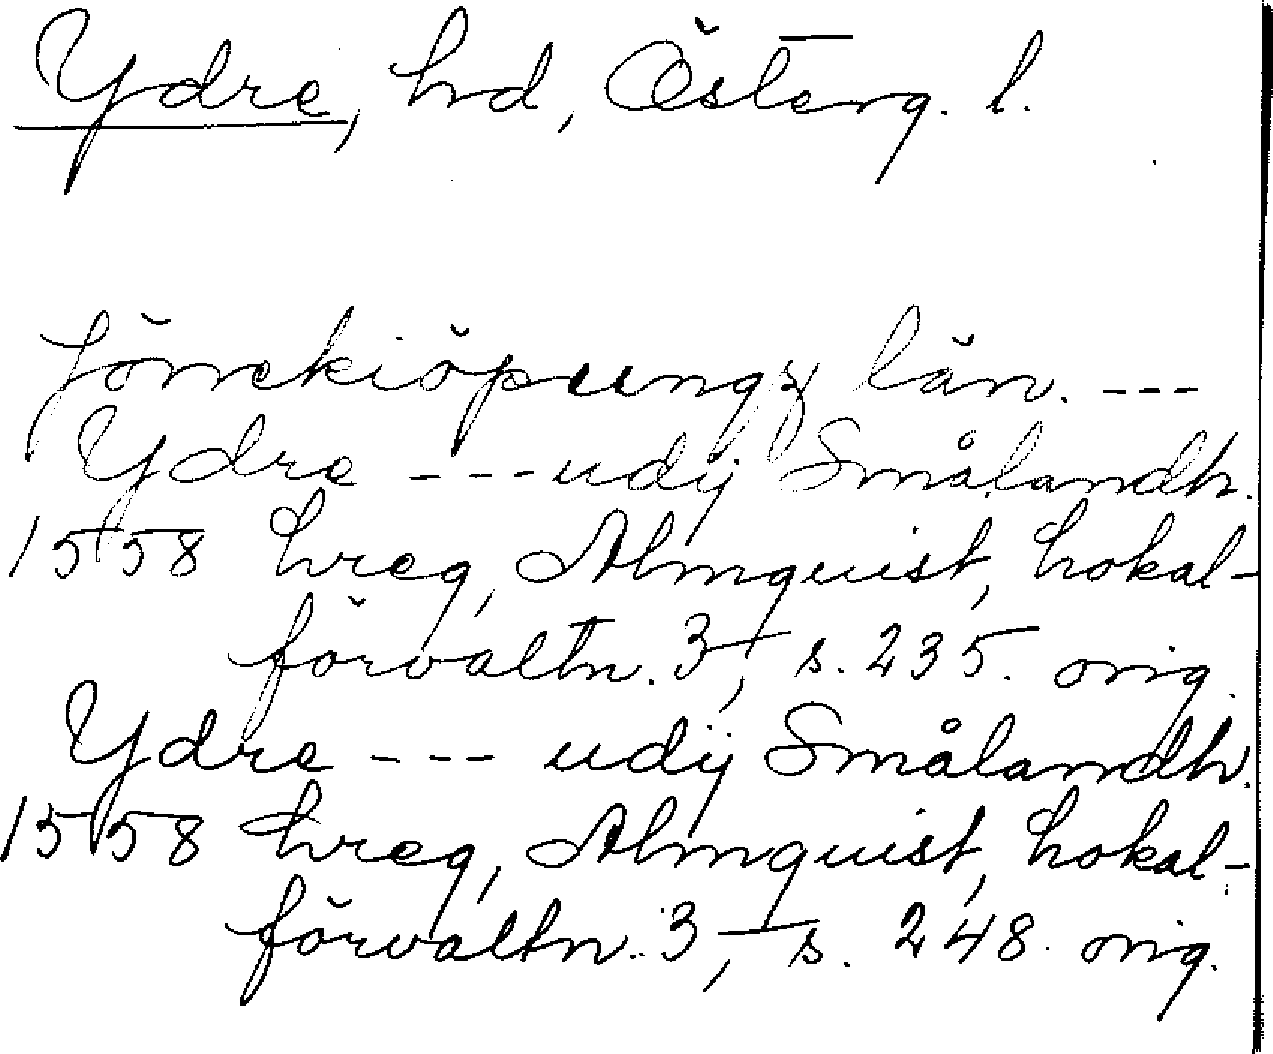 Ydre, hd, Österg. l.
Jönekiöpungz län. ---
Ydre --- udÿ Smålandh.
1558 hreg, Almquist, Lokal-
förvaltn. 3, s. 235. orig.
Ydre --- udÿ Smålandh.
1558 hreg, Almquist, Lokal-
förvaltn. 3, s. 248. orig.